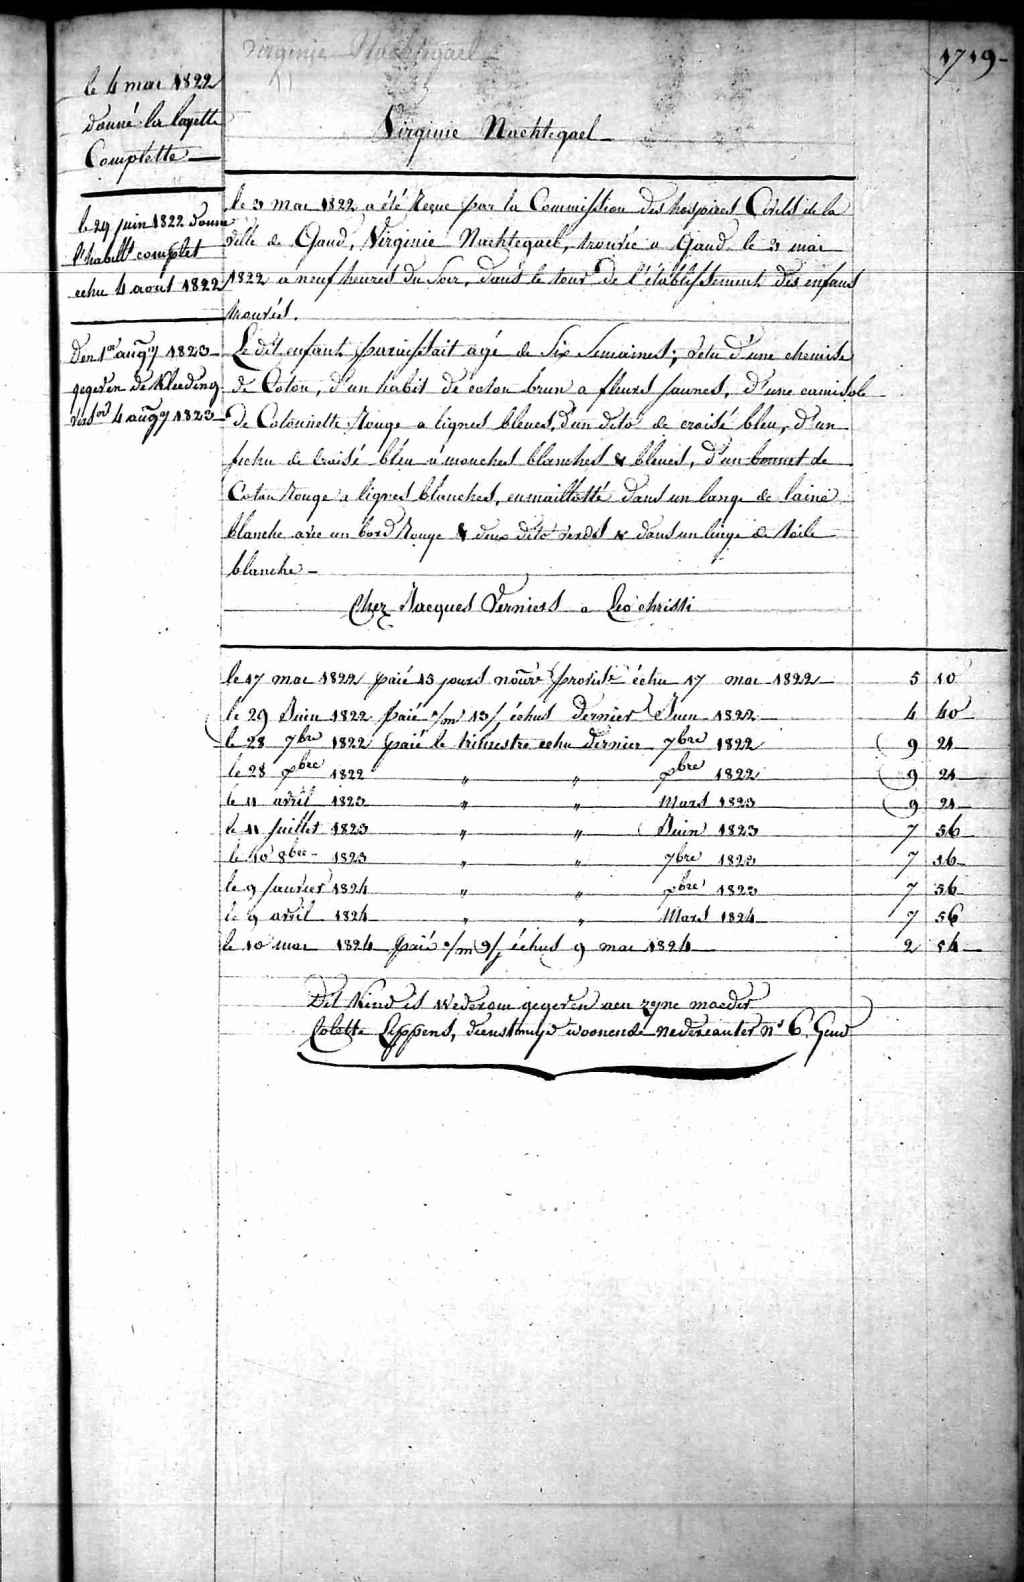 1719
Virginie Nachtegael
le 4 mai 1822
donné la layette
Complette
le 29 juin 1822 donné
l'habillt complet
echu 4 aout 1822
Den 1en augy 1823
gegeven de Kleeding
vers. 4 augy 1823
Virginie Nachtegael
le 3 mai 1822 a été Reçue par la Commission des hospices Civils de la
ville de Gand, Virginie Nachtegael, trouvée a Gand le 3 mai
1822 a neuf heures du Soir, dans le tour de l'établissement des enfans
trouvés.
Le dit enfant paraissait agé de Six Semaines; vetu d'une chemise
de Coton, d'un habit de coton brun a fleurs jaunes, d'une camisole
de Cotonnette Rouge a lignes bleues, d'un dito de croisé bleu, d'un
fichu de Croisé bleu a mouches blanches & bleues, d'un bonnet de
Coton Rouge a lignes blanches, enmaillotté dans un lange de laine
blanche avec un bord Rouge & deux dito verds & dans un linge de toile
blanche
Chez Jacques Verniers a Leo christi
le 17 mai 1822 paié 15 jours nourre provise échu 17 mai 1822 5 10
le 29 Juin 1822 Paié o/m 13/j échus dernier Juin 1822 4 40
le 28 7bre 1822 paié le trimestre echu dernier 7bre 1822 9 21
le 28 xbre 1822 " " xbre 1822 9 21
le 11 avril 1823 " " Mars 1823 9 21
le 11 Juillet 1823 " " Juin 1823 7 56
le 10 8bre 1823 " " 7bre 1823 7 56
le 9 Janvier 1824 " " xbre 1823 7 56
le 9 avril 1824 " " Mars 1824 7 56
le 10 mai 1824 paié o/m 9/j échus 9 mai 1824 2 54
Dit Kind is wederom gegeven aen zyne moeder
Colette Lippens, dienstmeyd woonende nedereauter no 6. Gend